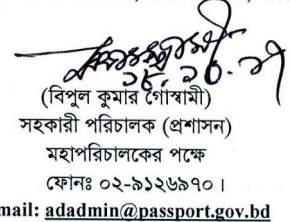 ১৮.১০.২১
(বিপুল কুমার গোস্বামী)
সহকারী পরিচালক (প্রশাসন)
মহাপরিচালকের পক্ষে
ফোনঃ ০২-৯১২৬৯৭০।
mail: adadmin@passport.gov.bd